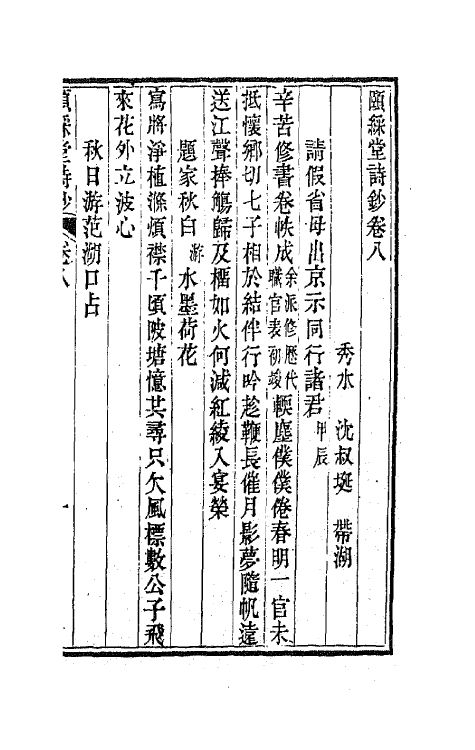 頤綵堂詩鈔卷八
秀水　沈叔埏　帶湖
請假省母出京示同行諸君甲辰
辛苦修書卷帙成余派修歷代職官表初竣輭塵僕僕倦春明一官未
抵懷鄉切七子相於結伴行吟趁鞭長催月影夢隨帆遠
送江聲捧觴歸及榴如火何減紅綾入宴榮
題家秋白游水墨荷花
寫將淨植滌煩襟千頃陂塘憶共尋只欠風標數公子飛
來花外立波心
秋日游范湖口占
頤綵堂詩鈔　卷八　一